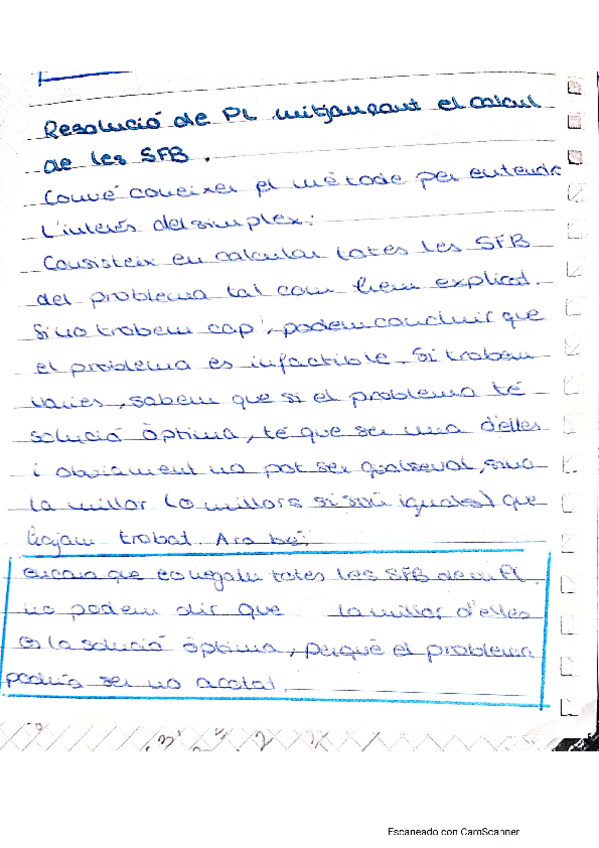 Resolució de PL mitjançant el càlcul
de les SFB.
Convé conèixer el mètode per entendre
l'interès del simplex:
Consisteix en calcular totes les SFB
del problema tal com hem explicat.
Si no trobem cap, podem concluir que
el problema és infactible. Si trobem
varies, sabem que si el problema té
solució òptima, té que ser una d'elles
i obviament no pot ser qualsevol, sino
la millor (o millors si són iguals) que
hagam trobat. Ara bé:
encara que conegam totes les SFB de un PL.
no podem dir que la millor d'elles
és la solució òptima, perquè el problema
podria ser no acotat.
Escaneado con CamScanner